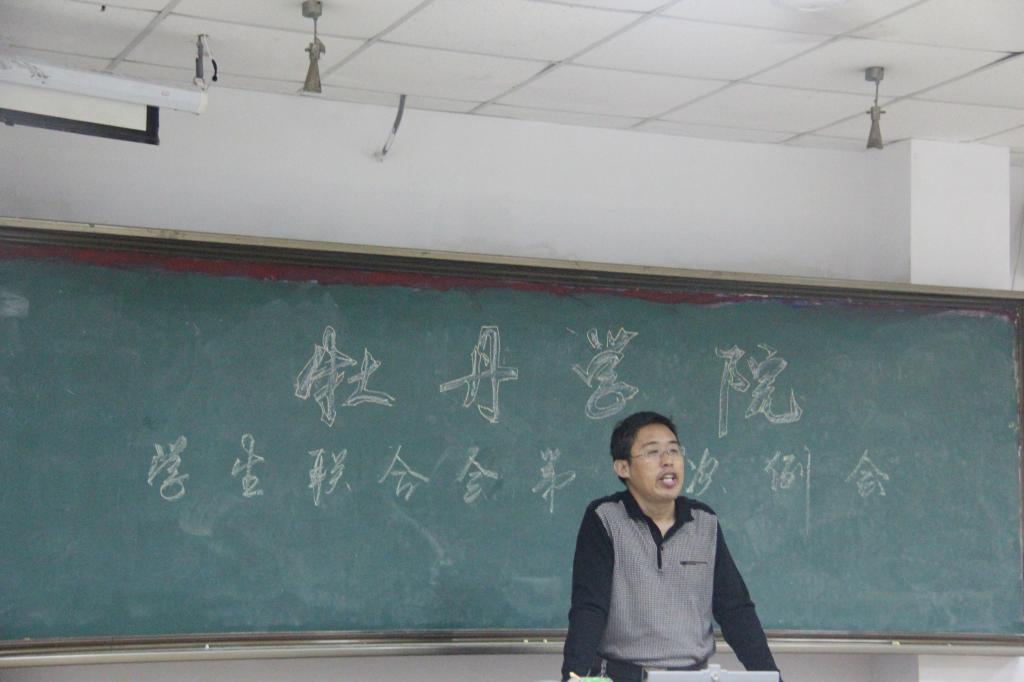 牡丹学院
学生联合会第 次例会